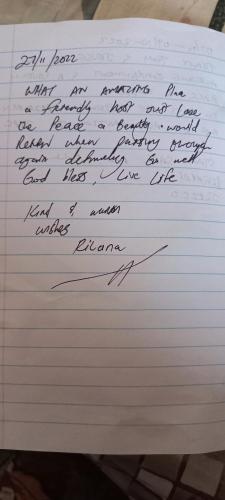 27/11/2022
WHAT AN AMAZING Place
a friendly host just Love
the Peace & Beauty. would
Return when passing through
again definately Go well
God bless, Live Life
Kind & warm
wishes
Rihana